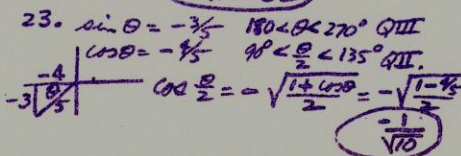 23. sin θ = -3/5 180<θ<270° QIII
cos θ = -4/5 90°<θ/2<135° QII.
-4
-3 θ 5 cos θ/2 = -√((1+cosθ)/2) = -√((1-4/5)/2)
-1/√10